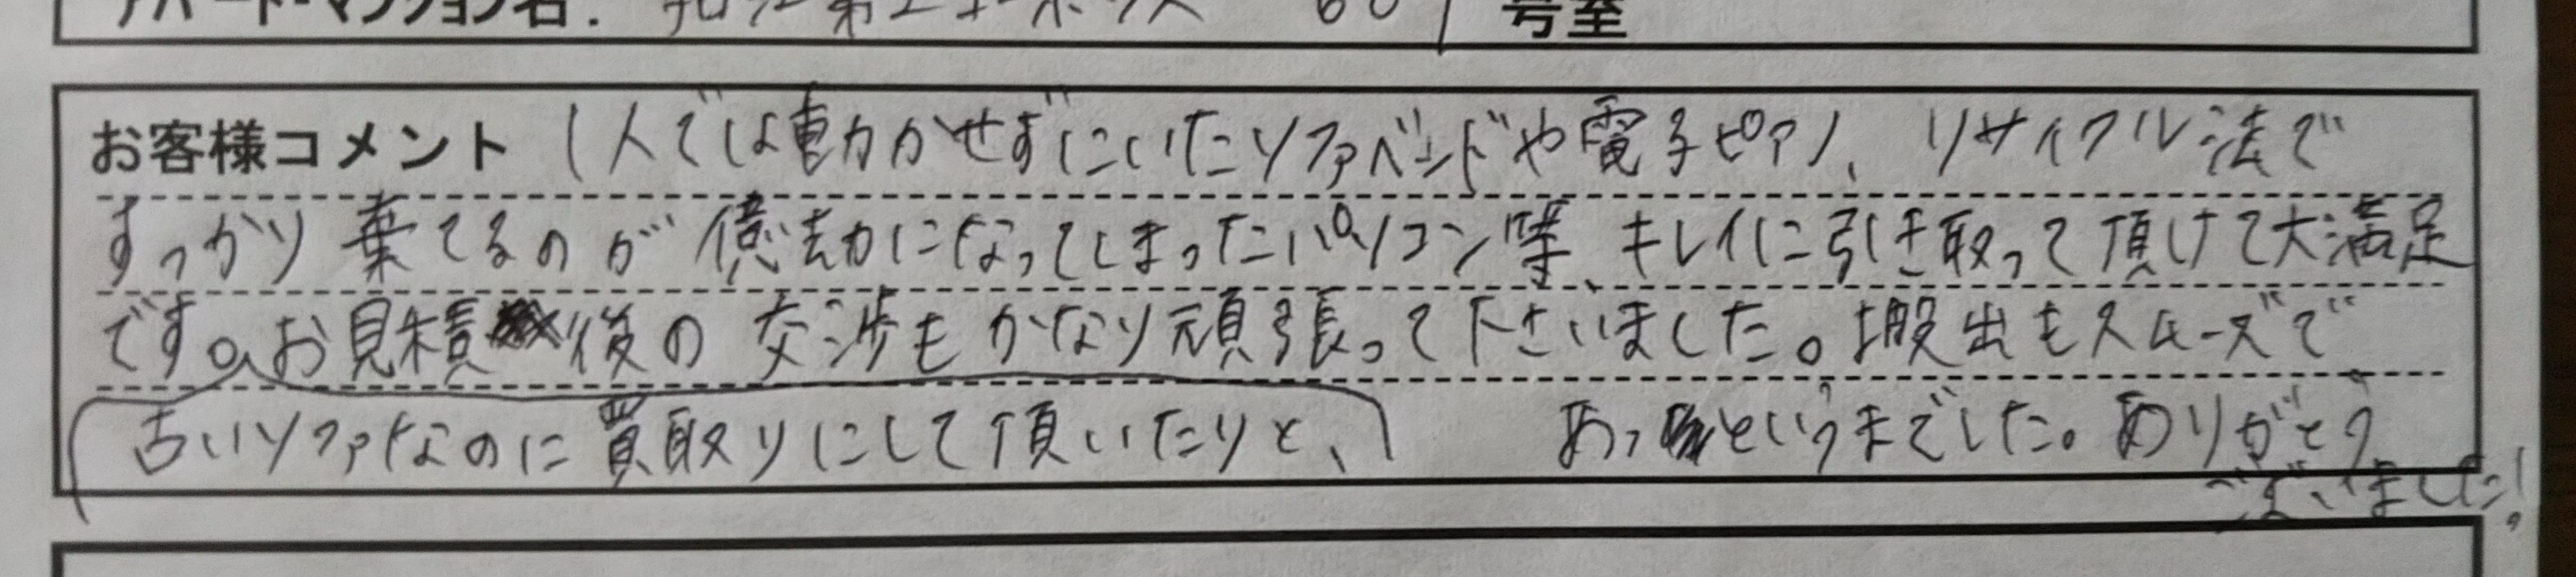 アパート・マンション名: 号室
お客様コメント 1人では動かせずにいたソファベッドや電子ピアノ、リサイクル法で
すっかり棄てるのが億劫になってしまったパソコン等、キレイに引き取って頂けて大満足
です。お見積後の交渉もかなり頑張って下さいました。搬出もスムーズで
古いソファなのに買取りにして頂いたりと、 あっというまでした。ありがとう
ございました!